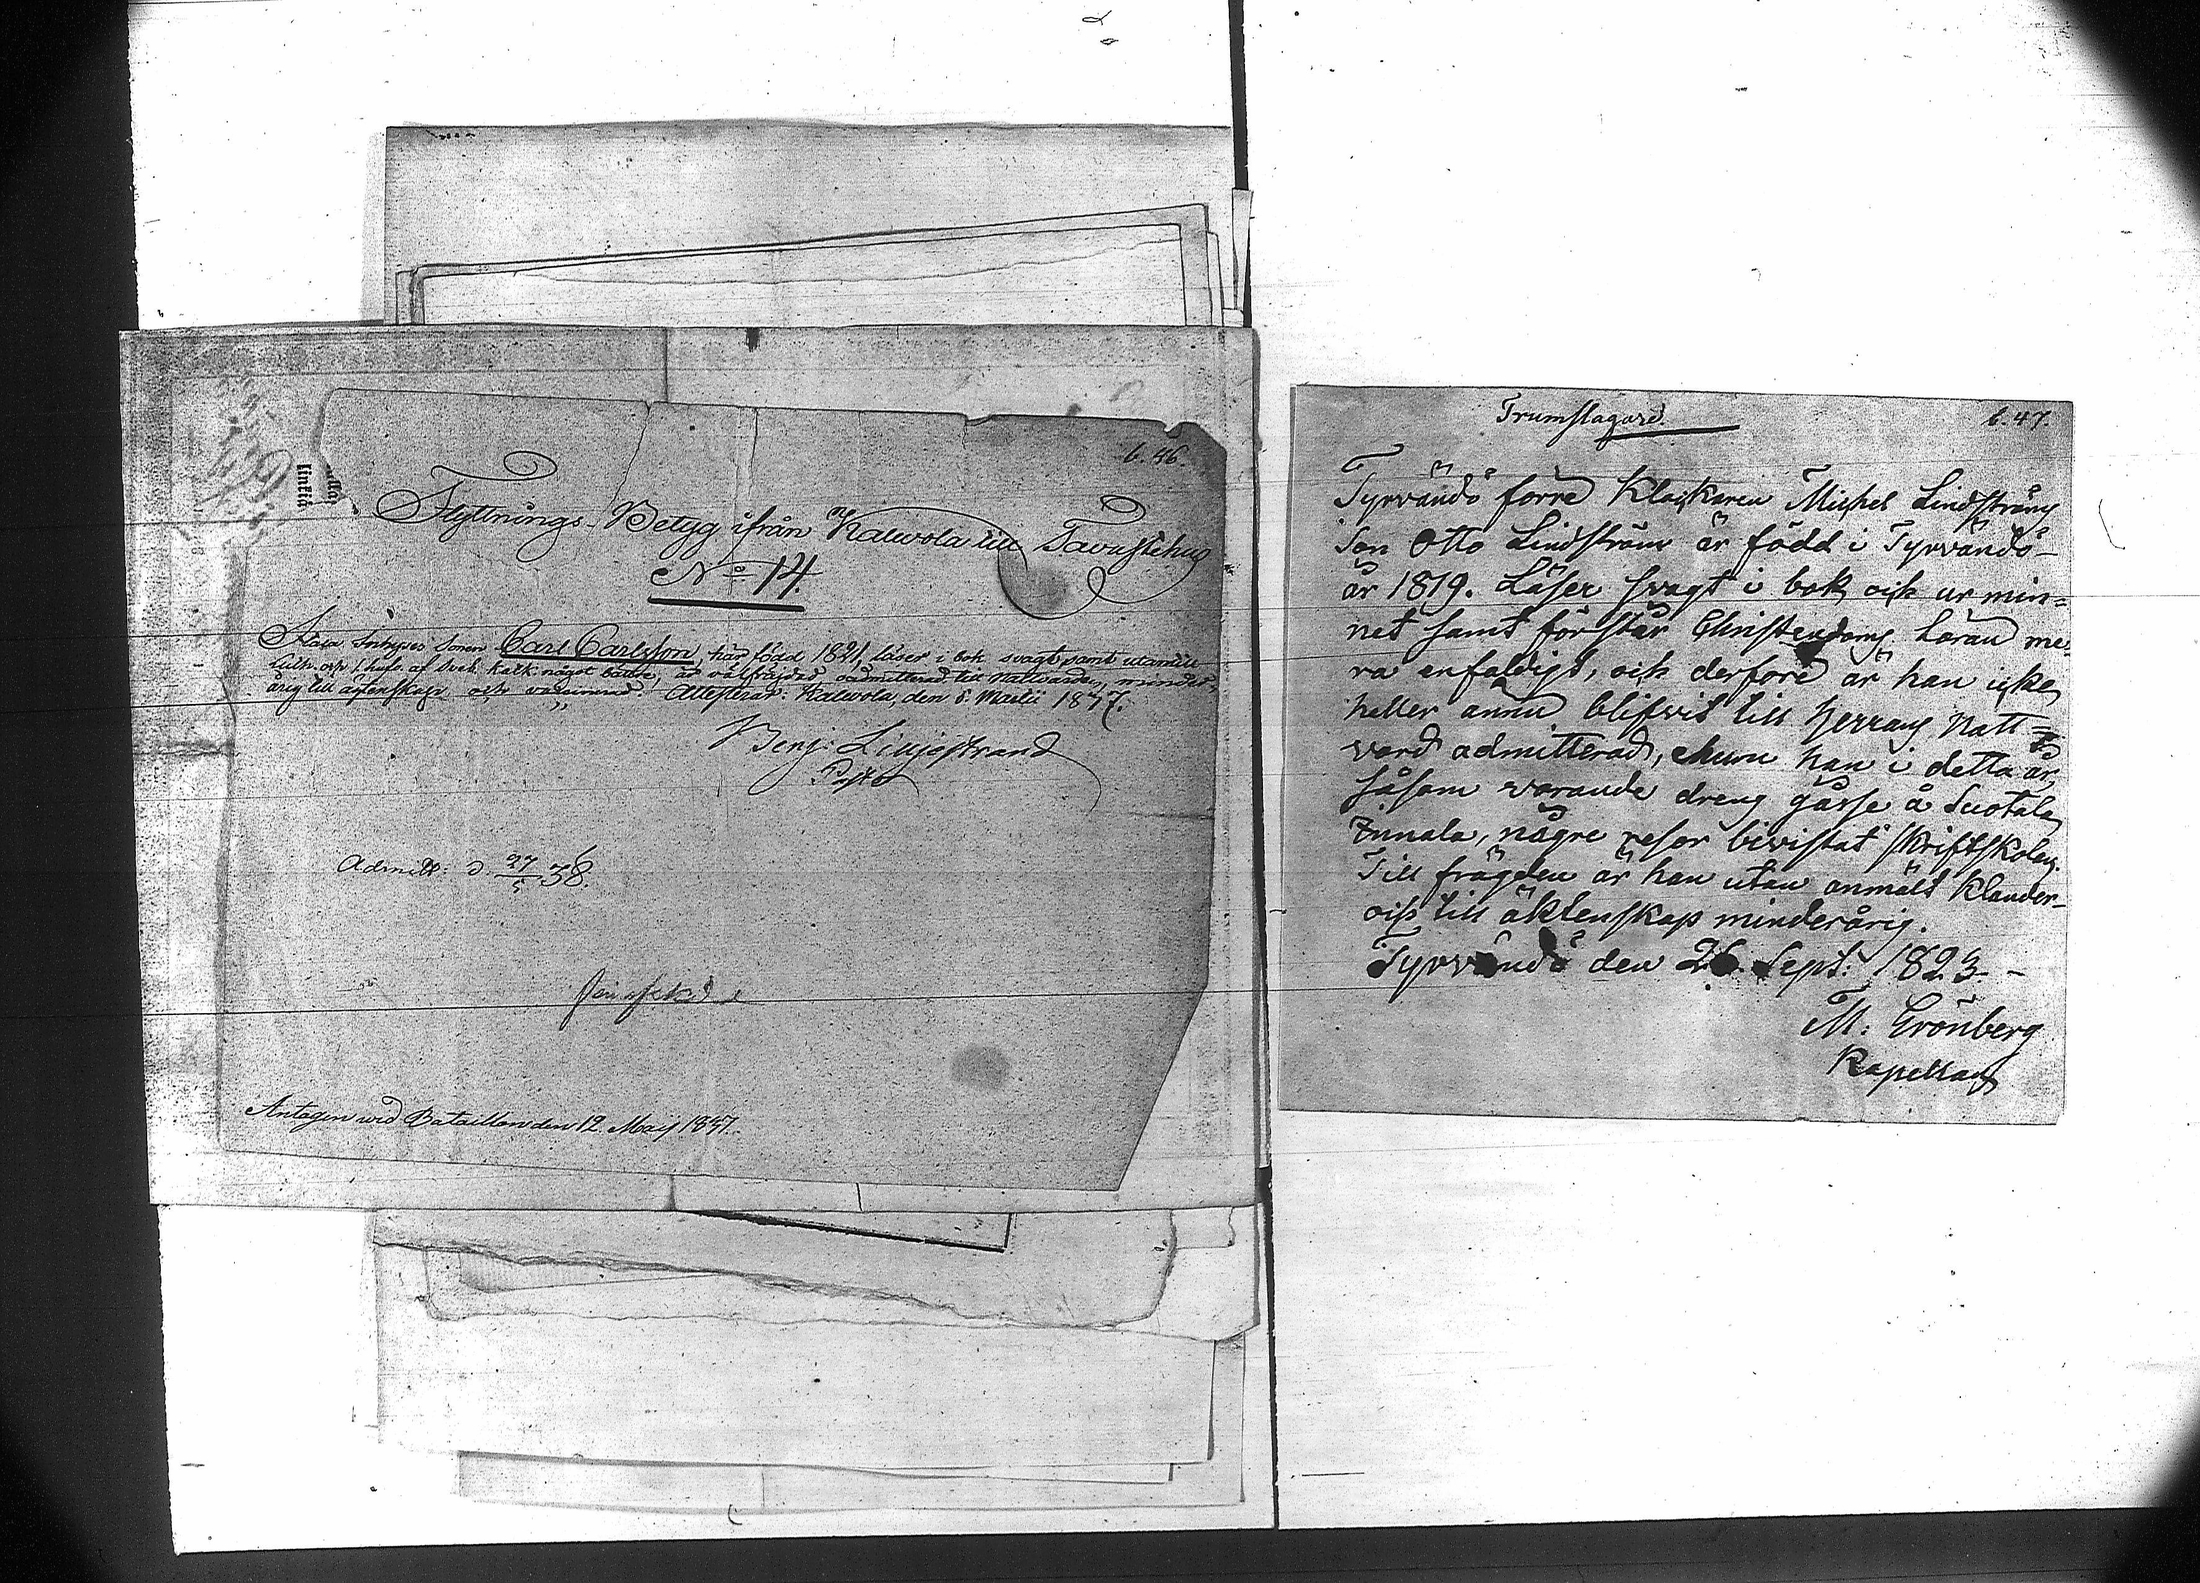 b. 46.
Flyttnings-Betyg ifrån Kalwola till Tavastehus
No 14.
Inhyses Sonen Carl Carlsson, född 1821, läser i bok svagt samt utantill
Luth. och af Sveb. Katk. något bättre, är välfräjdad, oadmitterad till Nattvarden, minder-
årig till äktenskap och vaccinerad. Attesterar. Kalwola, den 5 Martii 1837.
Benj. Liljestrand
Pastor
Admitt: d. 27/5 38.
Antagen wid Bataillon den 12 Maij 1837.
Trumslagare.
b. 47.
Tyrvändö förre Klockaren Michel Lindströms
Son Otto Lindström är född i Tyrvändö
år 1819. Läser svagt i bok och ur min-
net samt förstår Christendoms Läran me-
ra enfaldigt, och derföre är han icke
heller ännu blifvit till Herrans Natt-
vard admitterad, ehuru han i detta år,
såsom varande dreng gosse å Suotala
Innala, någre resor bivistat Skriftskolan.
Till frägden är han utan anmält klander
och till äktenskap minderårig.
Tyrvändö den 26 Sept: 1823. -
M: Grönberg
Kapellan